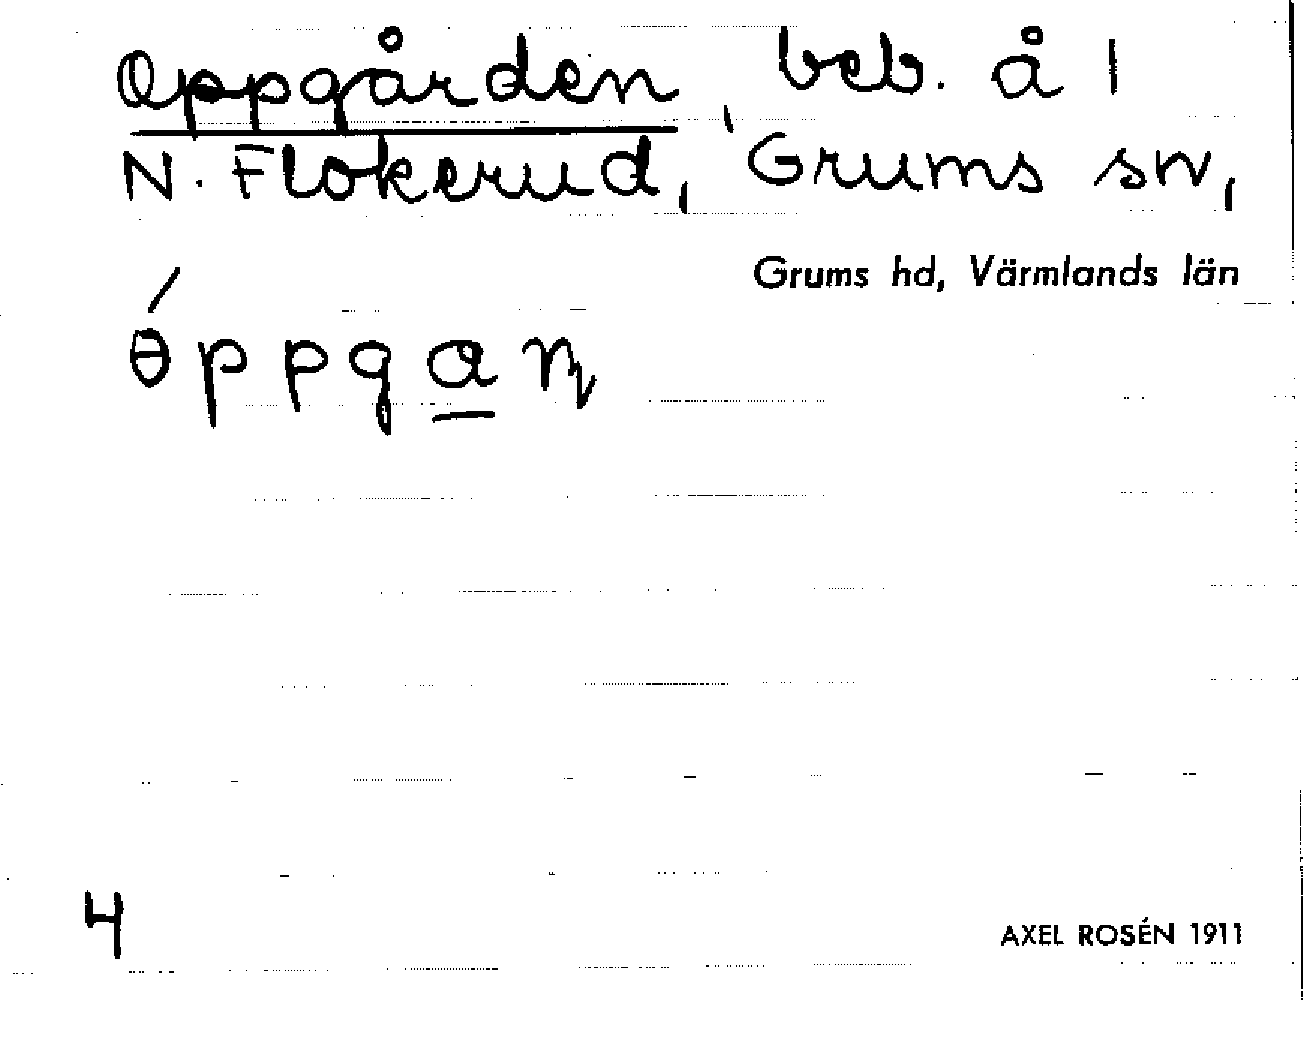 Oppgården, beb. å 1
N. Flokerud, Grums sn,
Grums hd, Värmlands län
ɵ́ppgan̥
4
AXEL ROSÉN 1911